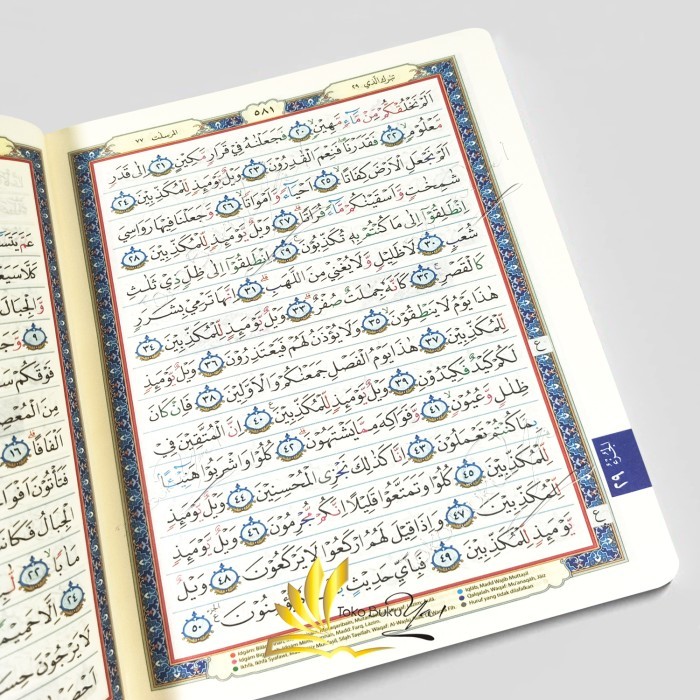 تبرك الذي ٢٩
٥٨١
المرسلت ٧٧
اَلَمْ نَخْلُقْكُّمْ مِّنْ مَّاۤءٍ مَّهِيْنٍۙ ٢٠ فَجَعَلْنٰهُ فِيْ قَرَارٍ مَّكِيْنٍ ٢١ اِلٰى قَدَرٍ
مَّعْلُوْمٍ ٢٢ فَقَدَرْنَاۖ فَنِعْمَ الْقٰدِرُوْنَ ٢٣ وَيْلٌ يَّوْمَىِٕذٍ لِّلْمُكَذِّبِيْنَ ٢٤
اَلَمْ نَجْعَلِ الْاَرْضَ كِفَاتًا ٢٥ اَحْيَاۤءً وَّاَمْوَاتًا ٢٦ وَّجَعَلْنَا فِيْهَا رَوَاسِيَ
شٰمِخٰتٍ وَّاَسْقَيْنٰكُمْ مَّاۤءً فُرَاتًا ٢٧ وَيْلٌ يَّوْمَىِٕذٍ لِّلْمُكَذِّبِيْنَ ٢٨
اِنْطَلِقُوْٓا اِلٰى مَا كُنْتُمْ بِهٖ تُكَذِّبُوْنَ ٢٩ اِنْطَلِقُوْٓا اِلٰى ظِلٍّ ذِيْ ثَلٰثِ
شُعَبٍ ٣٠ لَا ظَلِيْلٍ وَّلَا يُغْنِيْ مِنَ اللَّهَبِ ٣١ اِنَّهَا تَرْمِيْ بِشَرَرٍ
كَالْقَصْرِ ٣٢ كَاَنَّهٗ جِمٰلَتٌ صُفْرٌ ٣٣ وَيْلٌ يَّوْمَىِٕذٍ لِّلْمُكَذِّبِيْنَ ٣٤
هٰذَا يَوْمُ لَا يَنْطِقُوْنَ ٣٥ وَلَا يُؤْذَنُ لَهُمْ فَيَعْتَذِرُوْنَ ٣٦ وَيْلٌ يَّوْمَىِٕذٍ
لِّلْمُكَذِّبِيْنَ ٣٧ هٰذَا يَوْمُ الْفَصْلِ جَمَعْنٰكُمْ وَالْاَوَّلِيْنَ ٣٨ فَاِنْ كَانَ
لَكُمْ كَيْدٌ فَكِيْدُوْنِ ٣٩ وَيْلٌ يَّوْمَىِٕذٍ لِّلْمُكَذِّبِيْنَ ٤٠ اِنَّ الْمُتَّقِيْنَ فِيْ
ظِلٰلٍ وَّعُيُوْنٍ ٤١ وَّفَوَاكِهَ مِمَّا يَشْتَهُوْنَ ٤٢ كُلُوْا وَاشْرَبُوْا هَنِيْۤـًٔا
بِمَا كُنْتُمْ تَعْمَلُوْنَ ٤٣ اِنَّا كَذٰلِكَ نَجْزِى الْمُحْسِنِيْنَ ٤٤ وَيْلٌ يَّوْمَىِٕذٍ
لِّلْمُكَذِّبِيْنَ ٤٥ كُلُوْا وَتَمَتَّعُوْا قَلِيْلًا اِنَّكُمْ مُّجْرِمُوْنَ ٤٦ وَيْلٌ يَّوْمَىِٕذٍ
لِّلْمُكَذِّبِيْنَ ٤٧ وَاِذَا قِيْلَ لَهُمُ ارْكَعُوْا لَا يَرْكَعُوْنَ ٤٨ وَيْلٌ
يَّوْمَىِٕذٍ لِّلْمُكَذِّبِيْنَ ٤٩ فَبِاَيِّ حَدِيْثٍ يُؤْمِنُوْنَ ٥٠
ع
ع
٢٩
Toko Buku
Iqlab, Madd Wajib Muttaṣil
Huruf yang tidak dilafalkan